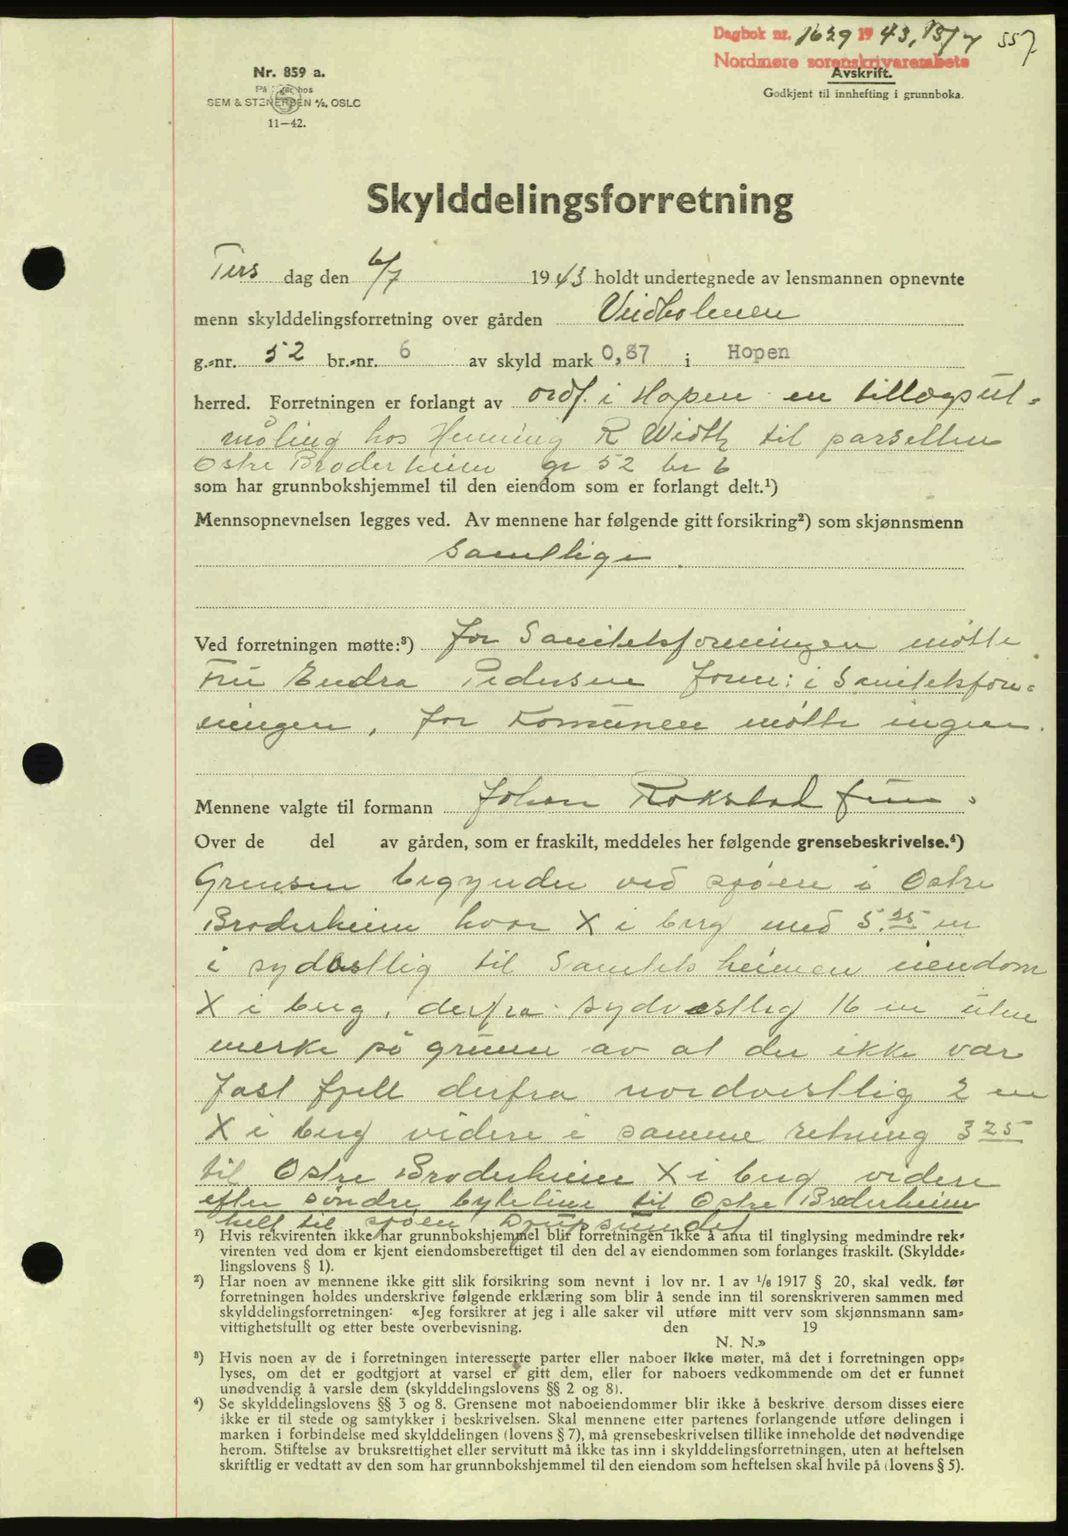 Dagbok nr. 1629 1943, 13/7 557
Nordmøre sorenskriverembete
Avskrift.
Godkjent til innhefting i grunnboka.
Nr. 859 a.
På lager hos
SEM & STENERSEN A/S, OSLO
11—42.
Skylddelingsforretning
Tirs dag den 6/7 1943 holdt undertegnede av lensmannen opnevnte
menn skylddelingsforretning over gården Veidholmen
g.-nr. 52 br.-nr. 6 av skyld mark 0,87 i Hopen
herred. Forretningen er forlangt av ordf. i Hopen en tillægsut-
måling hos Henning R Width til parsellen
Østre Broderheim gr 52 br 6
som har grunnbokshjemmel til den eiendom som er forlangt delt.¹)
Mennsopnevnelsen legges ved. Av mennene har følgende gitt forsikring²) som skjønnsmenn
samtlige.
Ved forretningen møtte:³) for Sanitetsforeningen møtte
Fru Endra Pedersen Form: i Sanitetsfore-
ningen, for Komunen møtte ingen.
Mennene valgte til formann Johan Rokstad
Over de del av gården, som er fraskilt, meddeles her følgende grensebeskrivelse.⁴)
Grensen begynder ved sjøen i Østre
Broderheim hvor X i berg med 5.25 m
i sydøstlig til Sanitetsheimen eiendom
X i berg, derfra sydvestlig 16 m uten
merke på grunn av at der ikke var
fast fjell derfra nordvestlig 2 m
X i berg videre i samme retning 3 25
til Østre Broderheim X i berg videre
efter søndre bytelinje til Østre Broderheim
helt til sjøen Drupsundet
¹) Hvis rekvirenten ikke har grunnbokshjemmel blir forretningen ikke å anta til tinglysing medmindre rek-
virenten ved dom er kjent eiendomsberettiget til den del av eiendommen som forlanges fraskilt. (Skyldde-
lingslovens § 1).
²) Har noen av mennene ikke gitt slik forsikring som nevnt i lov nr. 1 av 1/6 1917 § 20, skal vedk. før
forretningen holdes underskrive følgende erklæring som blir å sende inn til sorenskriveren sammen med
skylddelingsforretningen: «Jeg forsikrer at jeg i alle saker vil utføre mitt verv som skjønnsmann sam-
vittighetsfullt og etter beste overbevisning. den 19
N. N.»
³) Hvis noen av de i forretningen interesserte parter eller naboer ikke møter, må det i forretningen opp-
lyses, om det er godtgjort at varsel er gitt dem, eller for naboers vedkommende om det er funnet
unødvendig å varsle dem (skylddelingslovens §§ 2 og 8).
⁴) Se skylddelingslovens §§ 3 og 8. Grensene mot naboeiendommer blir ikke å beskrive dersom disses eiere
ikke er til stede og samtykker i beskrivelsen. Skal mennene etter partenes forlangende utføre delingen i
marken i forbindelse med skylddelingen (lovens § 7), må grensebeskrivelsen tillike inneholde det nødvendige
herom. Stiftelse av bruksrettighet eller servitutt må ikke tas inn i skylddelingsforretningen, uten at heftelsen
skriftlig er vedtatt av den som har grunnbokshjemmel til den eiendom som heftelsen skal hvile på (lovens § 5).